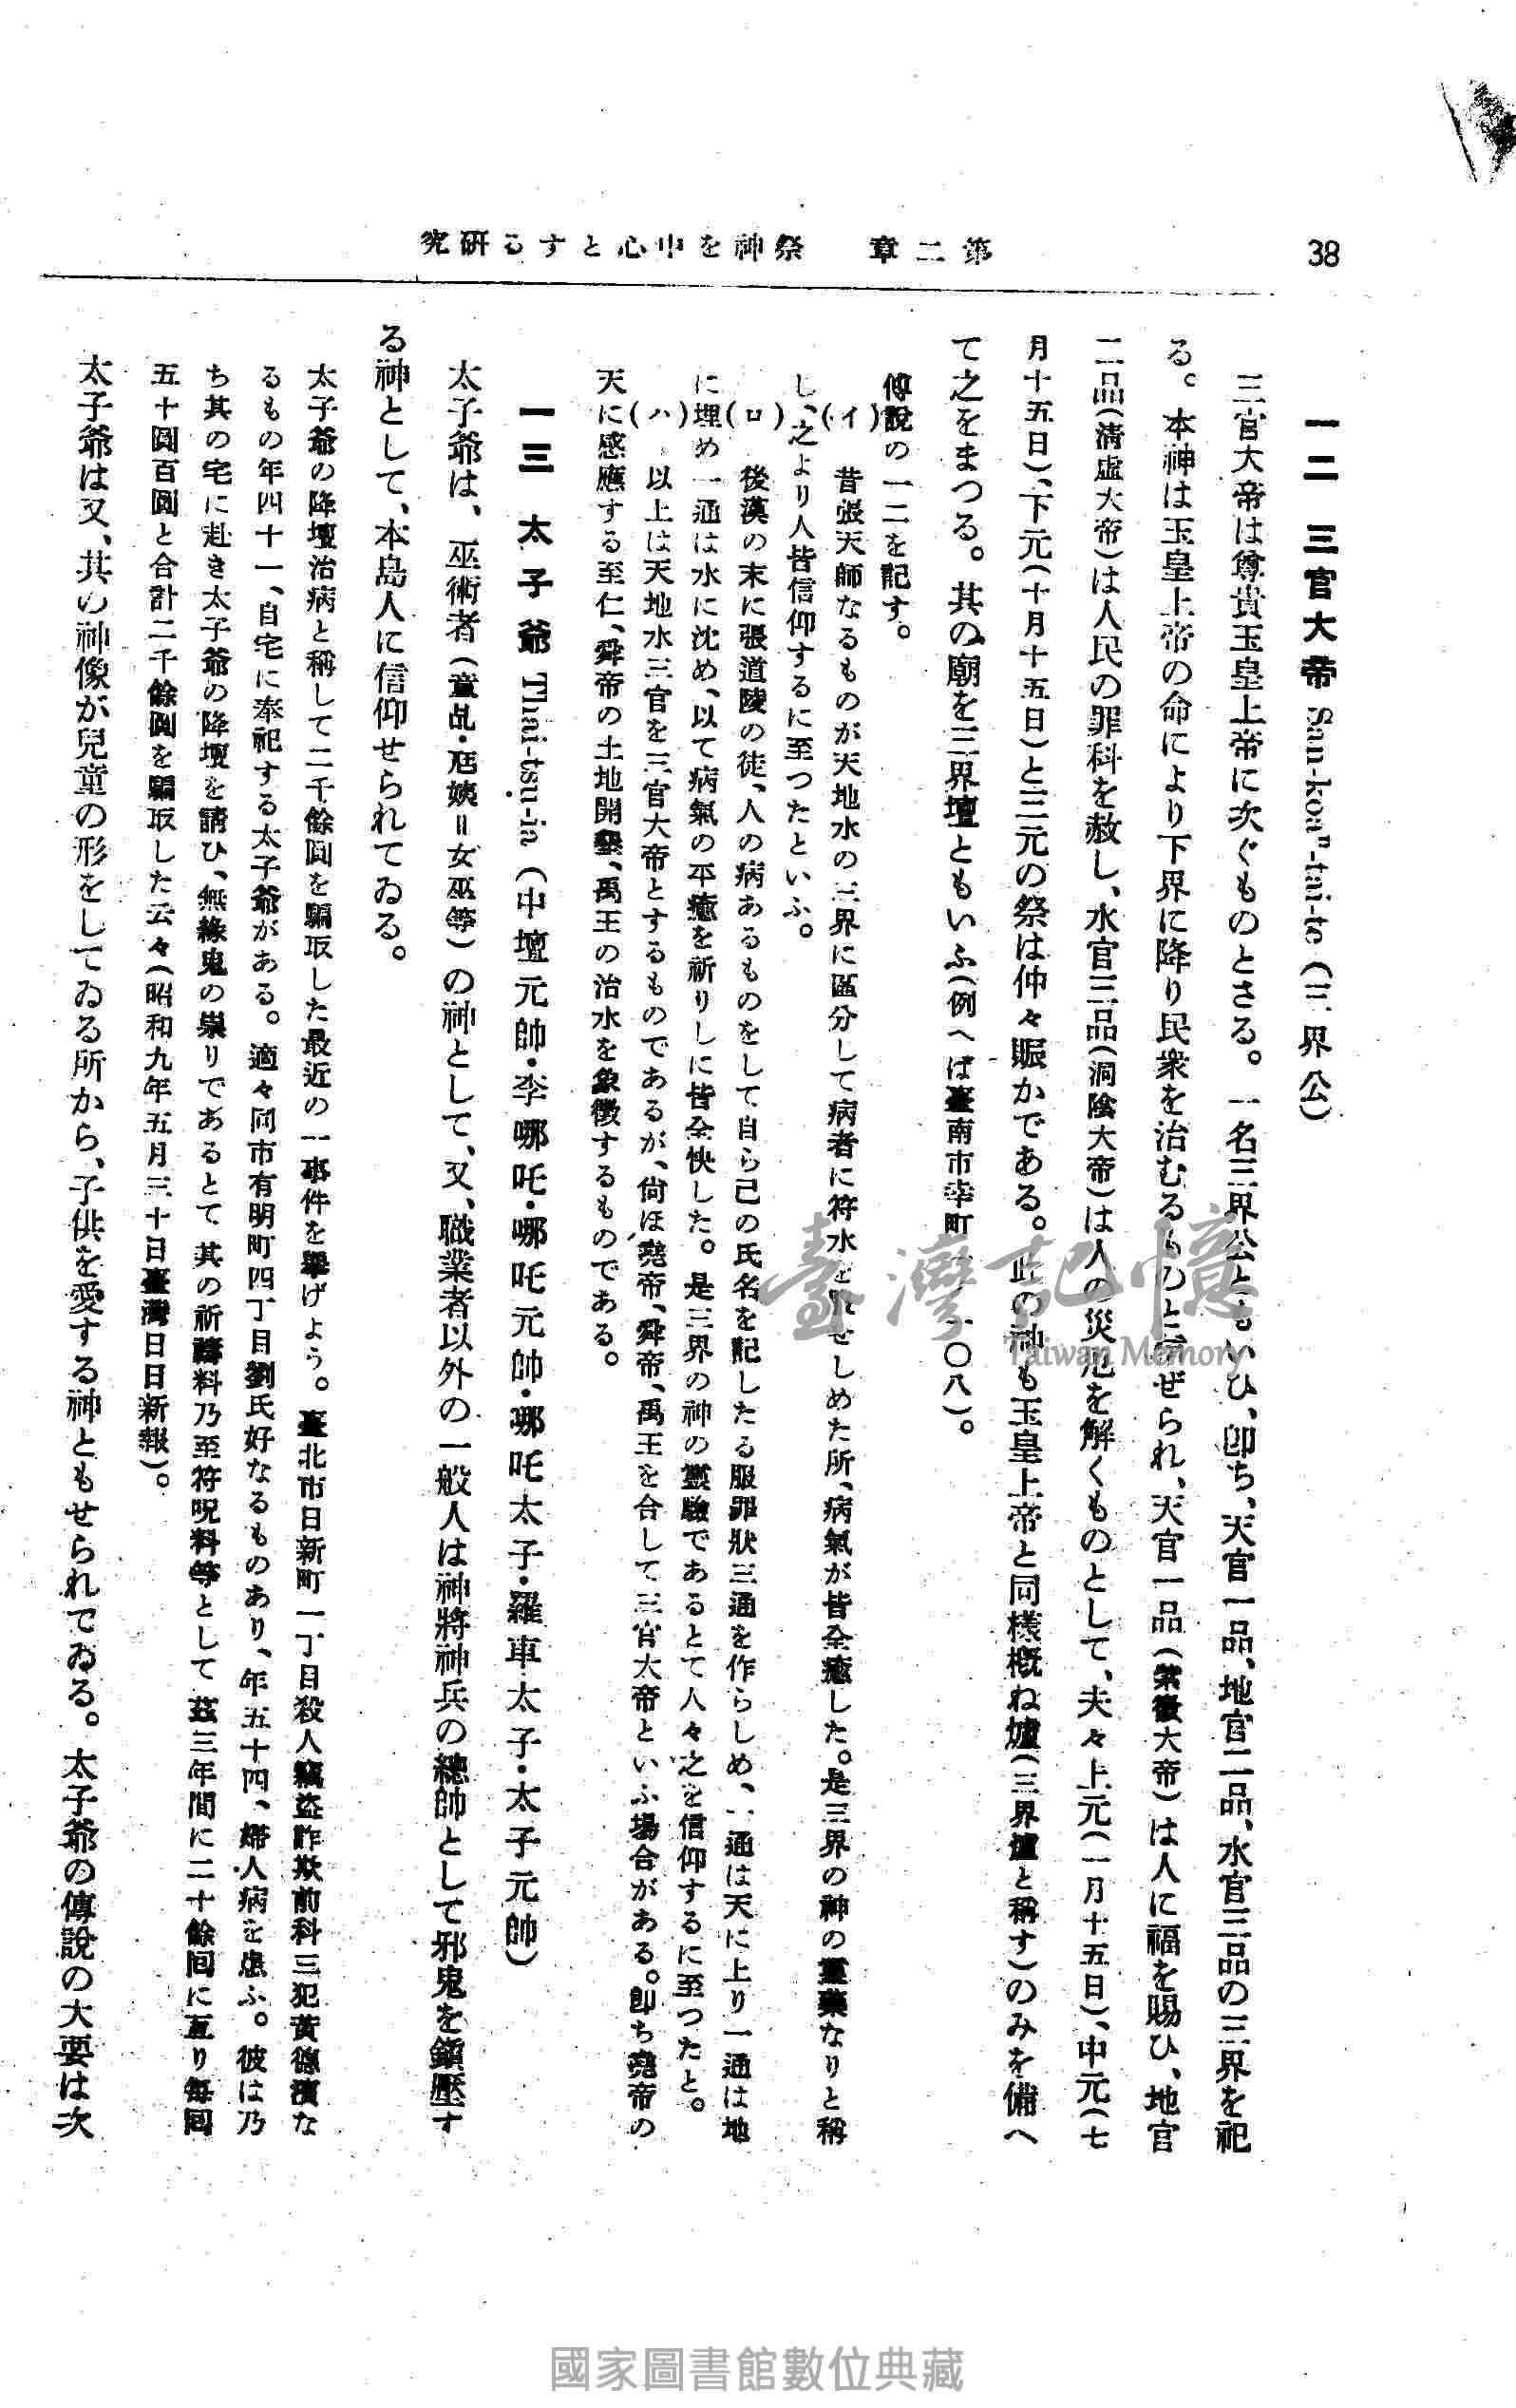 38
第二章　祭神を中心とする研究
一二　三官大帝 San-koaⁿ-tai-te（三界公）
三官大帝は尊貴玉皇上帝に次ぐものとさる。一名三界公ともいひ、卽ち、天官一品、地官二品、水官三品の三界を祀
る。本神は玉皇上帝の命により下界に降り民衆を治むるものと信ぜられ、天官一品（紫微大帝）は人に福を賜ひ、地官
二品（淸虛大帝）は人民の罪科を赦し、水官三品（洞陰大帝）は人の災厄を解くものとして、夫々上元（一月十五日）、中元（七
月十五日）、下元（十月十五日）と三元の祭は仲々賑かである。此の神も玉皇上帝と同樣槪ね爐（三界爐と稱す）のみを備へ
て之をまつる。其の廟を三界壇ともいふ（例へば臺南市幸町一〇八）。
傳說の一二を記す。
（イ）　昔張天師なるものが天地水の三界に區分して病者に符水を服せしめた所、病氣が皆全癒した。是三界の神の靈藥なりと稱
し、之より人皆信仰するに至つたといふ。
（ロ）　後漢の末に張道陵の徒、人の病あるものをして自ら己の氏名を記したる服罪狀三通を作らしめ、一通は天に上り一通は地
に埋め一通は水に沈め、以て病氣の平癒を祈りしに皆全快した。是三界の神の靈驗であるとて人々之を信仰するに至つたと。
（ハ）　以上は天地水三官を三官大帝とするものであるが、尙ほ堯帝、舜帝、禹王を合して三官大帝といふ場合がある。卽ち堯帝の
天に感應する至仁、舜帝の土地開墾、禹王の治水を象徵するものである。
一三　太子爺 Thai-tsu-ia（中壇元帥・李哪吒・哪吒元帥・哪吒太子・羅車太子・太子元帥）
太子爺は、巫術者（童乩・尪姨＝女巫等）の神として、又、職業者以外の一般人は神將神兵の總帥として邪鬼を鎭壓す
る神として、本島人に信仰せられてゐる。
太子爺の降壇治病と稱して二千餘圓を騙取した最近の一事件を擧げよう。臺北市日新町一丁目殺人竊盜詐欺前科三犯黃德濱な
るもの年四十一、自宅に奉祀する太子爺がある。適々同市有明町四丁目劉氏好なるものあり、年五十四、婦人病を患ふ。彼は乃
ち其の宅に赴き太子爺の降壇を請ひ、無緣鬼の祟りであるとて其の祈禱料乃至符呪料等として茲三年間に二十餘回に亙り每回
五十圓百圓と合計二千餘圓を騙取した云々（昭和九年五月三十日臺灣日日新報）。
太子爺は又、其の神像が兒童の形をしてゐる所から、子供を愛する神ともせられてゐる。太子爺の傳說の大要は次
臺灣記憶
Taiwan Memory
國家圖書館數位典藏